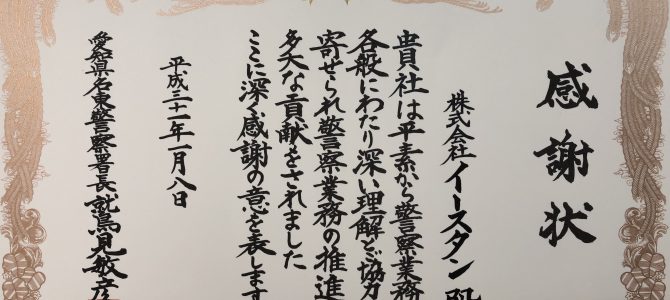 感謝状
株式会社イースタン殿
貴社は平素から警察業務
各般にわたり深い理解とご協力
寄せられ警察業務の推進
多大な貢献をされました
ここに深く感謝の意を表します
平成三十一年一月八日
愛知県名東警察署長 鷲見敏彦